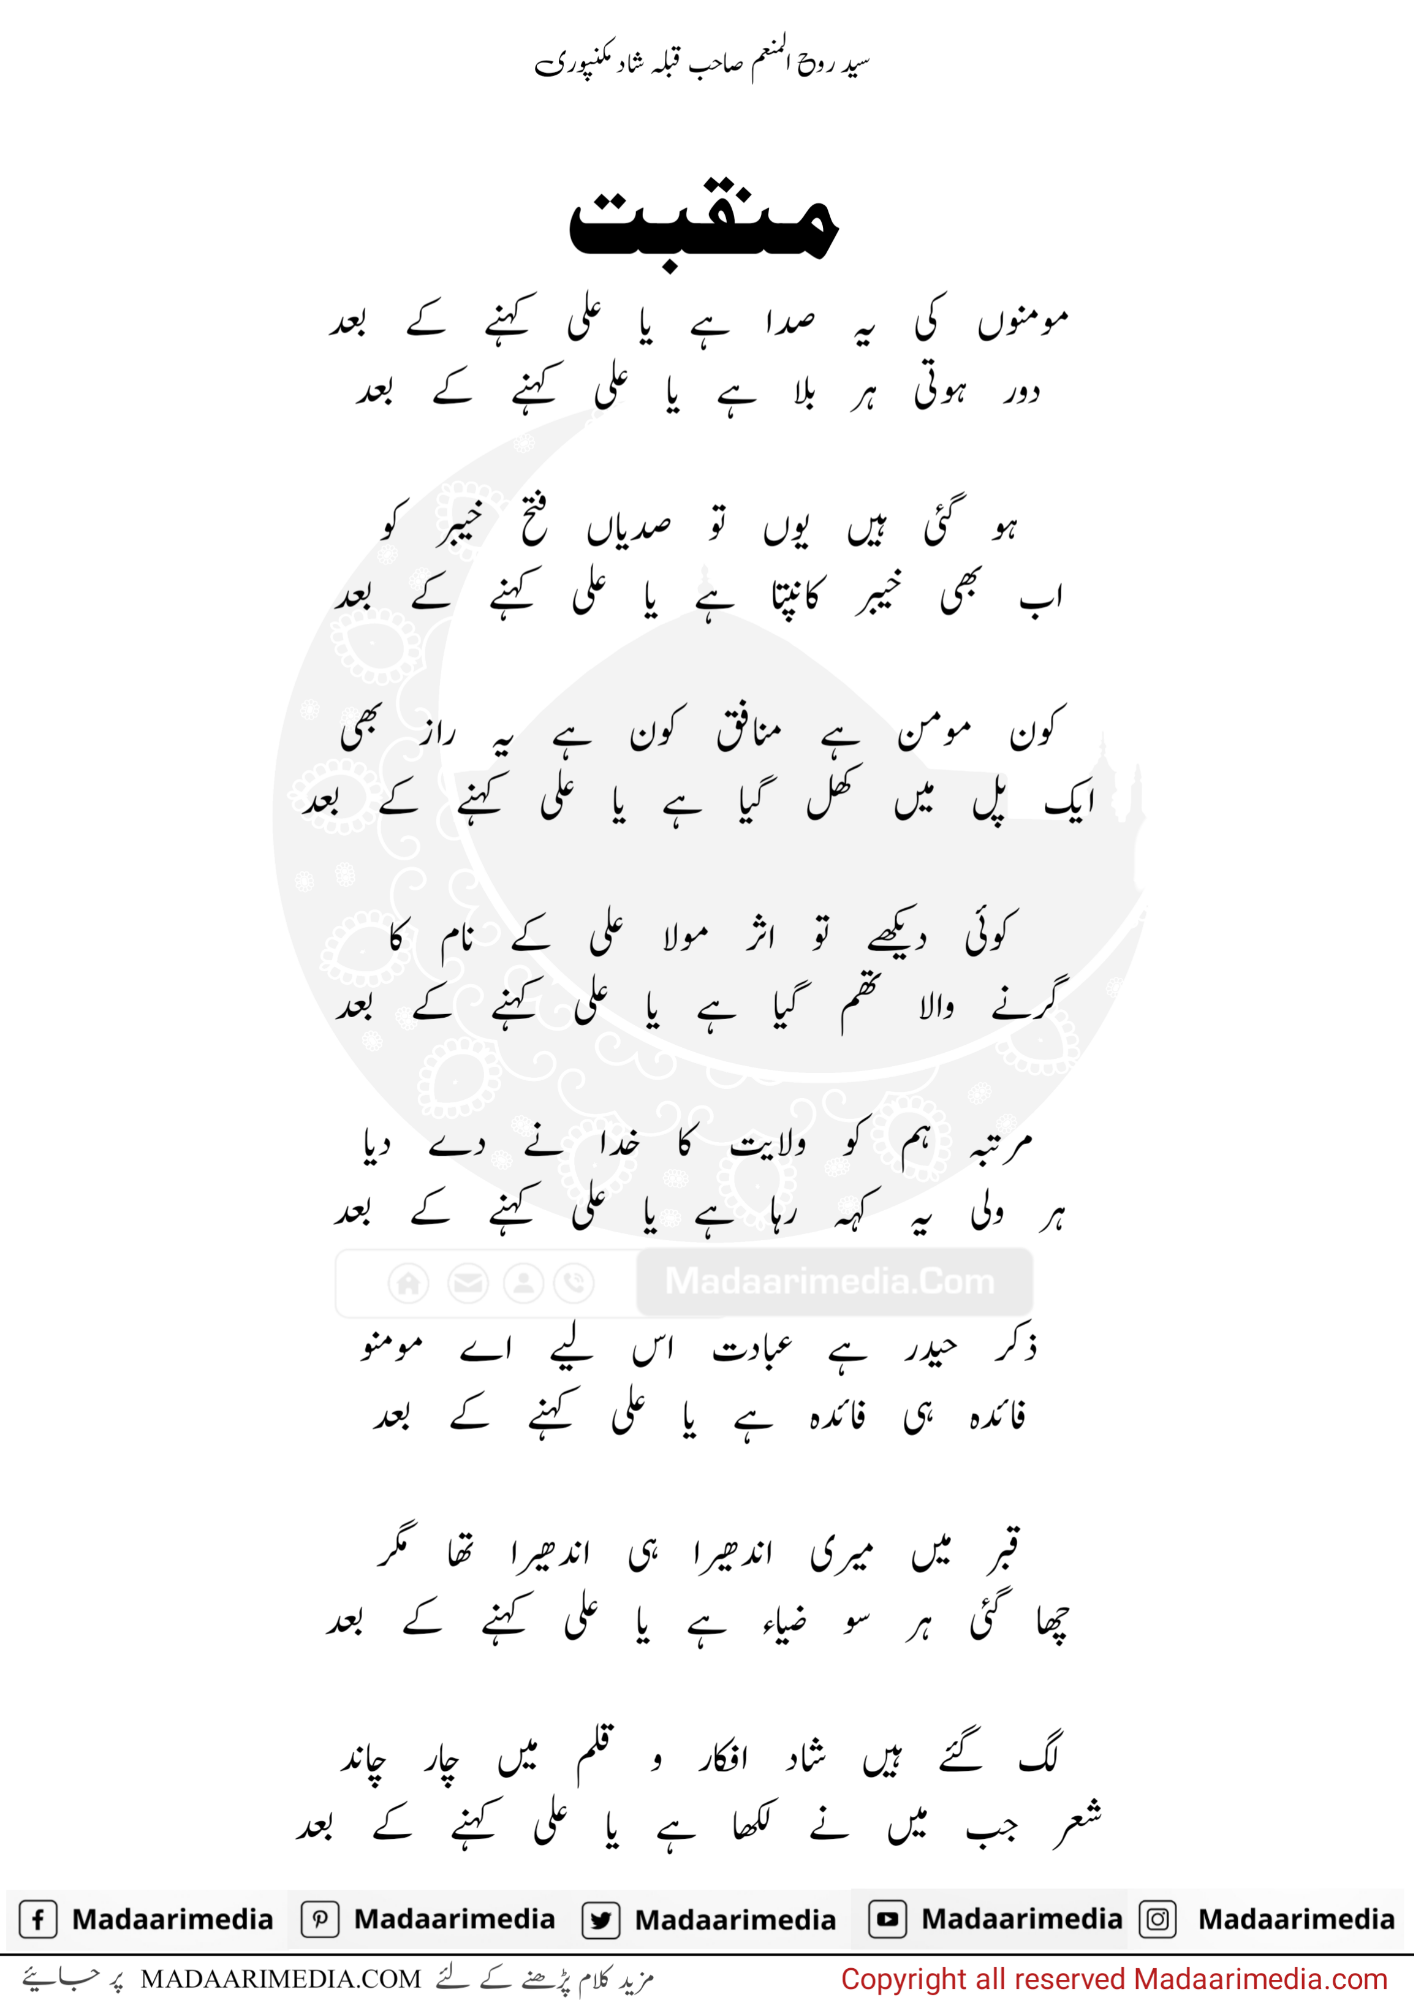 سید روح المنعم صاحب قبلہ شاد مکنپوری
منقبت
مومنوں کی یہ صدا ہے یا علی کہنے کے بعد
دور ہوتی ہر بلا ہے یا علی کہنے کے بعد
ہو گئی ہیں یوں تو صدیاں فتح خیبر کو
اب بھی خیبر کانپتا ہے یا علی کہنے کے بعد
کون مومن ہے منافق کون ہے یہ راز بھی
ایک پل میں کھل گیا ہے یا علی کہنے کے بعد
کوئی دیکھے تو اثر مولا علی کے نام کا
گرنے والا تھم گیا ہے یا علی کہنے کے بعد
مرتبہ ہم کو ولایت کا خدا نے دے دیا
ہر ولی یہ کہہ رہا ہے یا علی کہنے کے بعد
Madaarimedia.Com
ذکر حیدر ہے عبادت اس لیے اے مومنو
فائدہ ہی فائدہ ہے یا علی کہنے کے بعد
قبر میں میری اندھیرا ہی اندھیرا تھا مگر
چھا گئی ہر سو ضیاء ہے یا علی کہنے کے بعد
لگ گئے ہیں شاد افکار و قلم میں چار چاند
شعر جب میں نے لکھا ہے یا علی کہنے کے بعد
Madaarimedia Madaarimedia Madaarimedia Madaarimedia Madaarimedia
مزید کلام پڑھنے کے لئے MADAARIMEDIA.COM پر جائیے
Copyright all reserved Madaarimedia.com